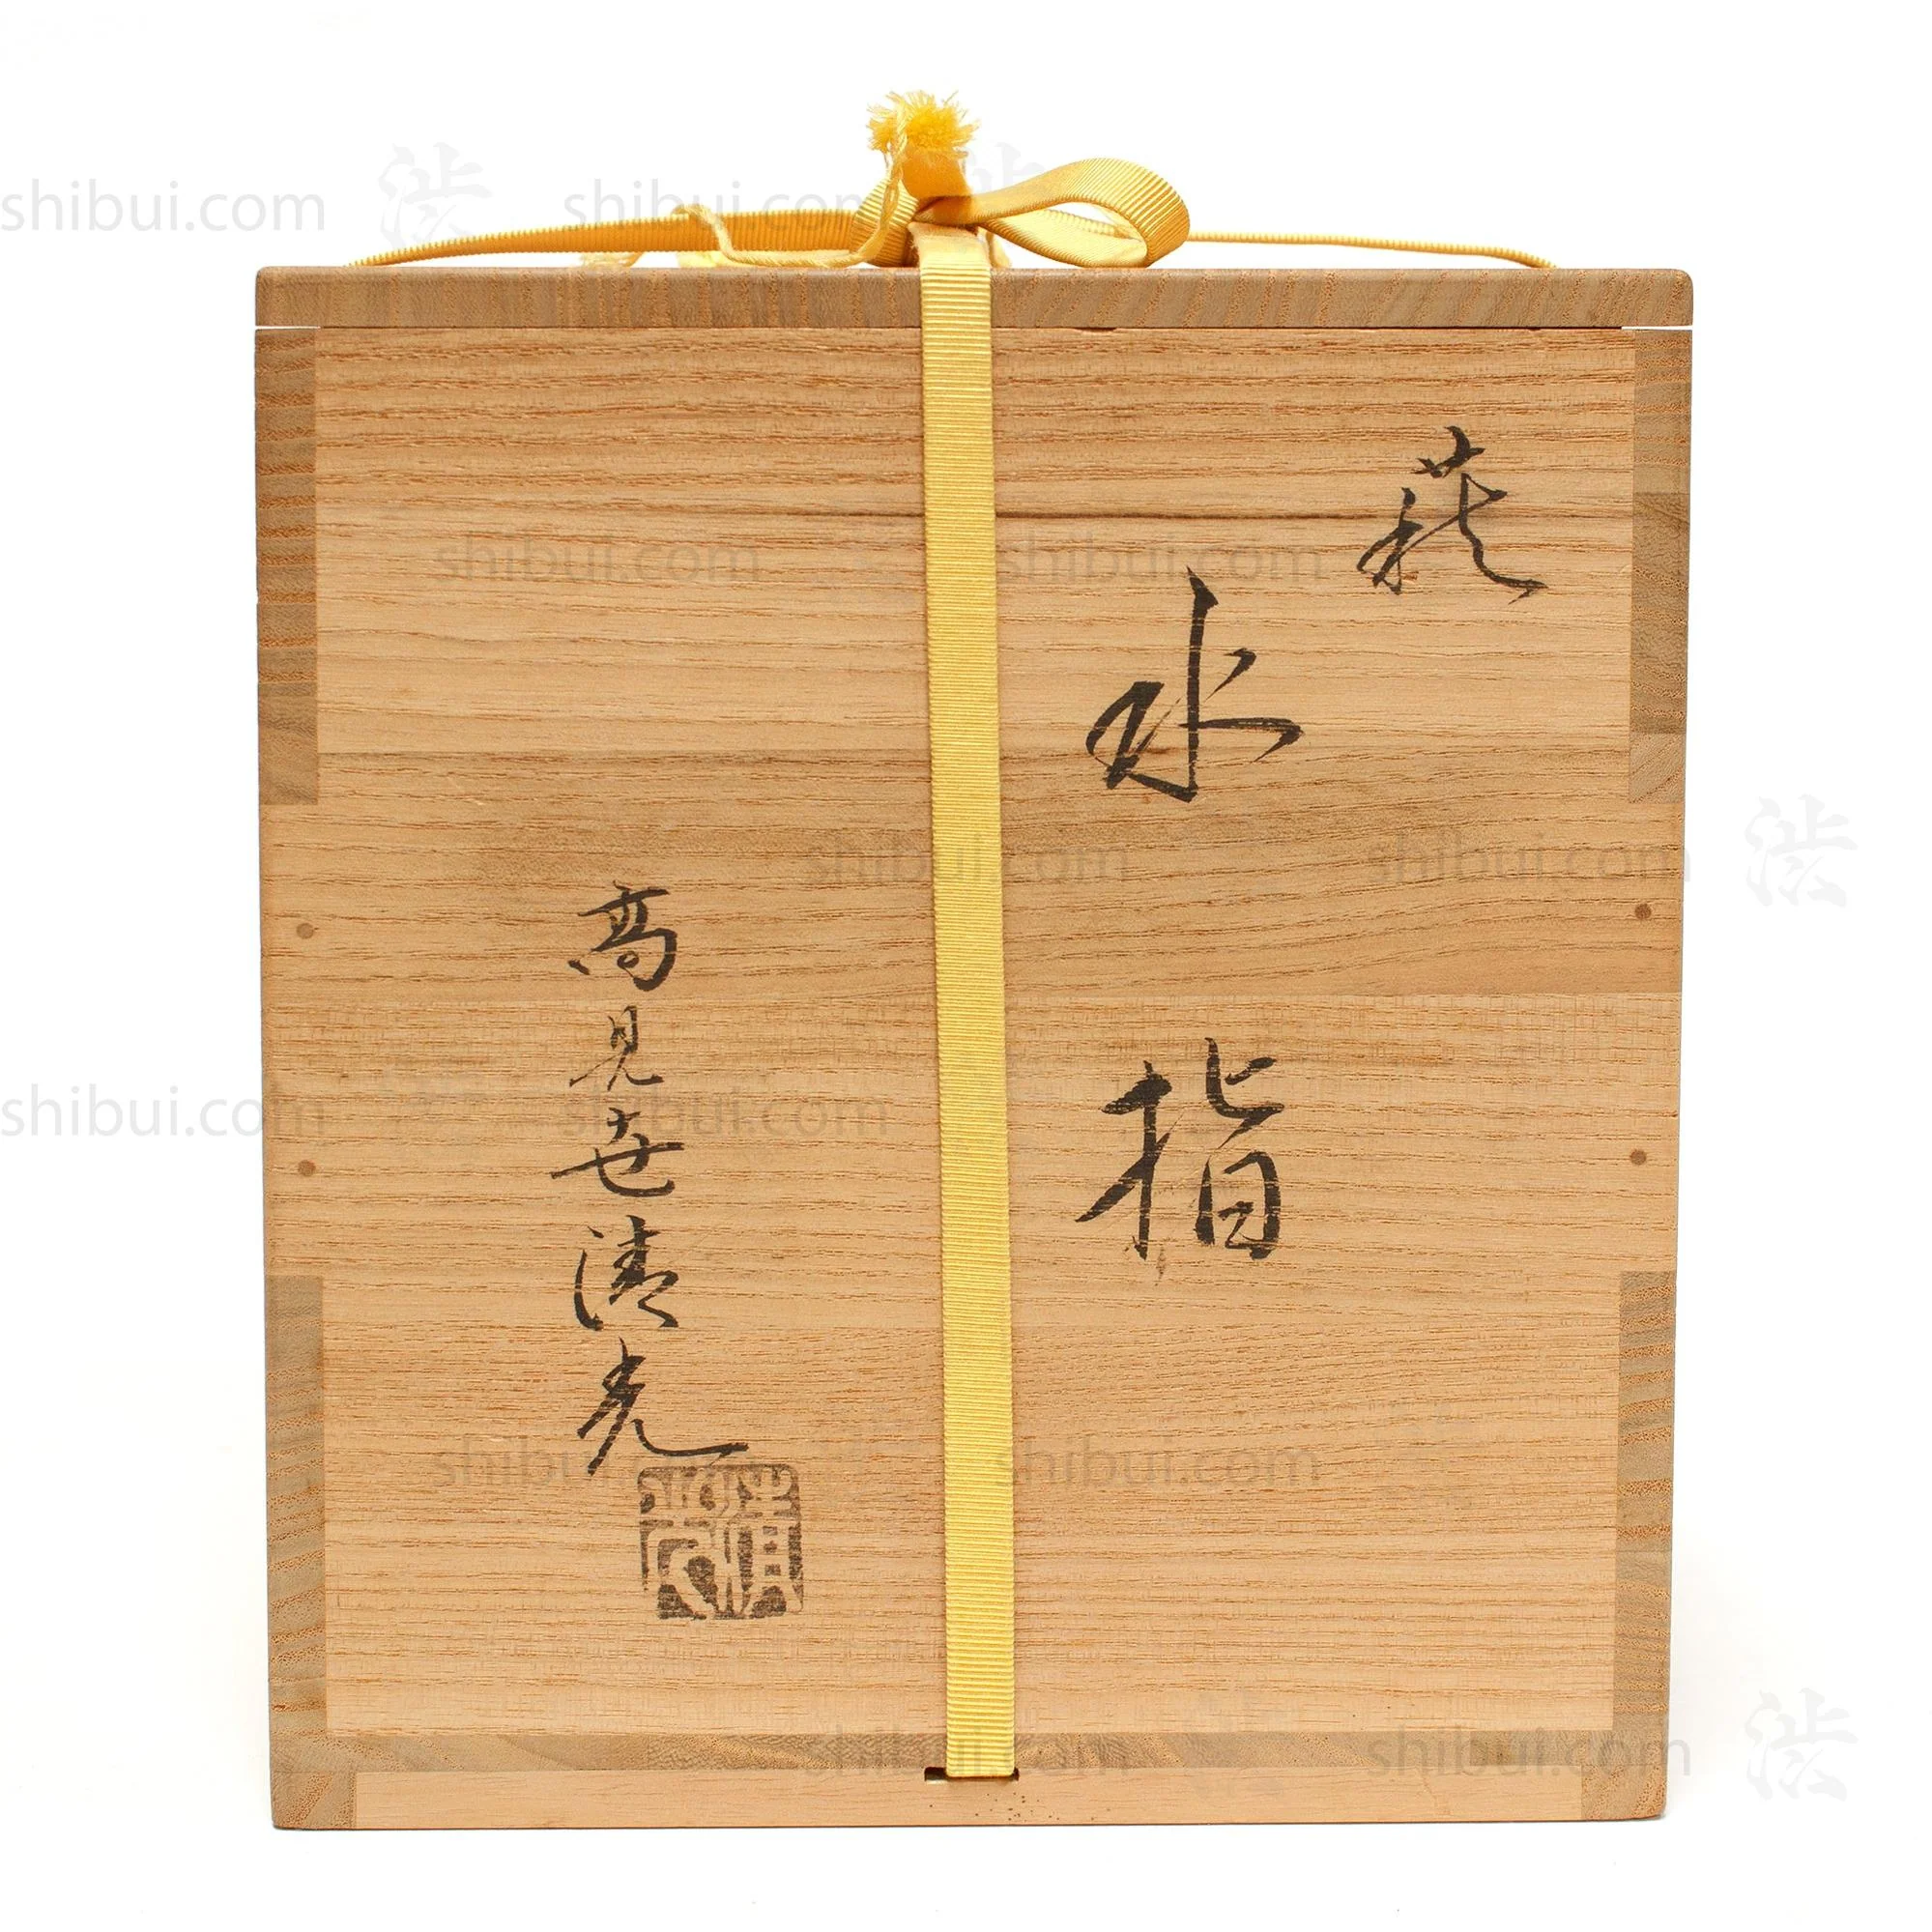 萩
水指
高見世清光
清光
shibui.com
渋
shibui.com
shibui.com
shibui.com
shibui.com
shibui.com
渋
shibui.com
shibui.com
shibui.com
shibui.com
shibui.com
shibui.com
渋